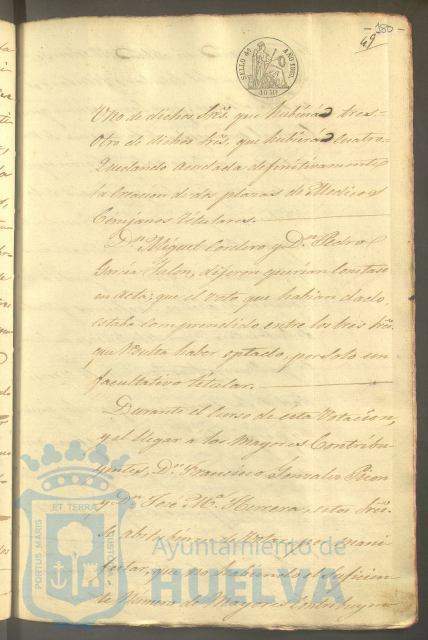 - 380 -
49
SELLO 4º AÑO 1883
Uno de dichos Srês. que hubirán tres-
Otro de dichos Srês. que hubirán cuatro-
Quedando acordada definitivamente
la creacion de dos plazas de Medicos
Cirujanos titulares.
Dn. Miguel Cordero y Dn. Pedro
Garcia Jalon, dijeron querian constase
en acta; que el voto que habian dado
estaba comprendido entre los tres Srês.
que resulta haber optado por solo un
facultativo titular.
Durante el curso de esta votacion,
y al llegar a los mayores Contribu
yentes, Dn. Francisco Gonzalez Picon
y Dn. José Mª. Herrera, estos Srês.
se abstubieron de votar por mani
festar, que no habiendo el suficien
te numero de Mayores Contribuyen
PORTUS MARIS ET TERRÆ CUSTODIA
Ayuntamiento de
HUELVA